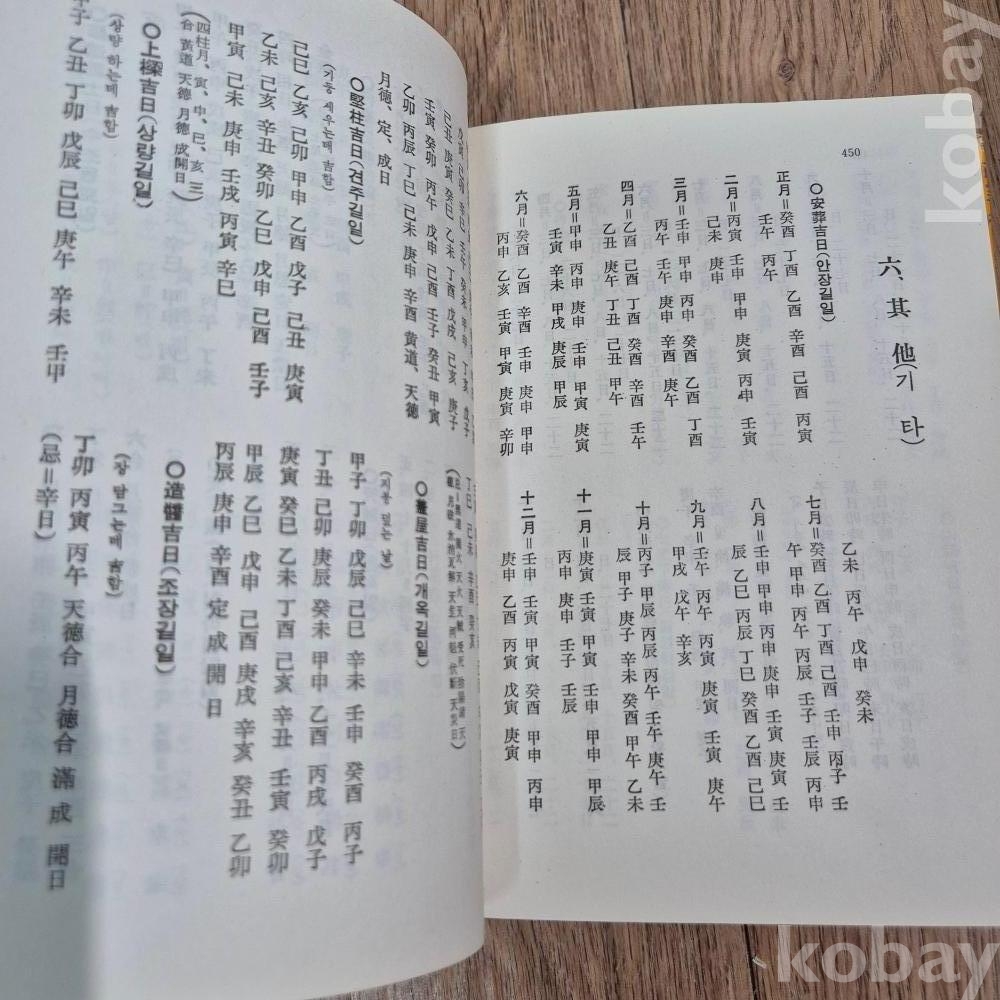 450
六、其他(기타)
○安葬吉日(안장길일)
正月=癸酉 丁酉 乙酉 辛酉 己酉 丙寅
壬午 丙午
二月=丙寅 壬申 甲申 庚寅 丙申 壬寅
己未 庚申
三月=壬申 甲申 丙申 癸酉 乙酉 丁酉
丙午 壬午 庚申 辛酉 庚午
四月=乙酉 己酉 丁酉 癸酉 辛酉 壬午
乙丑 庚午 丁丑 己丑 甲午
五月=甲申 丙申 庚申 壬申 甲寅 庚寅
壬寅 辛未 甲戌 庚辰 甲辰
六月=癸酉 乙酉 辛酉 壬申 庚申 甲申
丙申 乙亥 壬寅 甲寅 庚寅 辛卯
乙未 丙午 戊申 癸未
七月=癸酉 乙酉 丁酉 己酉 壬申 丙子 壬
午 甲申 丙午 丙申 壬子 壬辰 丙申
八月=壬申 甲申 丙申 庚申 壬寅 庚寅 壬
辰 乙巳 丙辰 丁巳 癸酉 乙酉 己巳
九月=壬午 丙午 丙寅 庚寅 壬寅 庚午
甲戌 戊午 辛亥
十月=丙子 甲辰 丙辰 丙午 壬午 庚午 壬
辰 甲子 庚子 辛未 癸酉 甲午 乙未
十一月=庚寅 壬寅 甲寅 丙寅 壬申 甲辰
丙申 庚申 壬子 壬辰
十二月=壬申 壬寅 甲寅 癸酉 甲申 丙申
庚申 乙酉 丙寅 戊寅 庚寅
己丑 庚寅 癸巳 乙未 丁酉 戊戌 己亥 庚子
壬寅 癸卯 丙午 戊申 己酉 壬子 癸丑 甲寅
乙卯 丙辰 丁巳 己未 庚申 辛酉 黄道、天德
月德、定、成日
○竪柱吉日(견주길일)
(기둥 세우는데 吉함)
己巳 乙亥 己卯 甲申 乙酉 戊子 己丑 庚寅
乙未 己亥 辛丑 癸卯 乙巳 戊申 己酉 壬子
甲寅 己未 庚申 壬戌 丙寅 辛巳
四柱月、寅、申、巳、亥 三
合 黃道 天德 月德 成開日
○上樑吉日(상량길일)
(상량 하는데 吉함)
甲子 乙丑 丁卯 戊辰 己巳 庚午 辛未 壬申
丁巳 己未 辛酉 癸亥
○蓋屋吉日(개옥길일)
(지붕 덮는 날)
甲子 丁卯 戊辰 己巳 辛未 壬申 癸酉 丙子
丁丑 己卯 庚辰 癸未 甲申 乙酉 丙戌 戊子
庚寅 癸巳 乙未 丁酉 己亥 辛丑 壬寅 癸卯
甲辰 乙巳 戊申 己酉 庚戌 辛亥 癸丑 乙卯
丙辰 庚申 辛酉 定 成 開 日
○造醬吉日(조장길일)
(장 담그는데 吉함)
丁卯 丙寅 丙午 天德合 月德合 滿 成 開日
(忌=辛日)
kobay
kobay